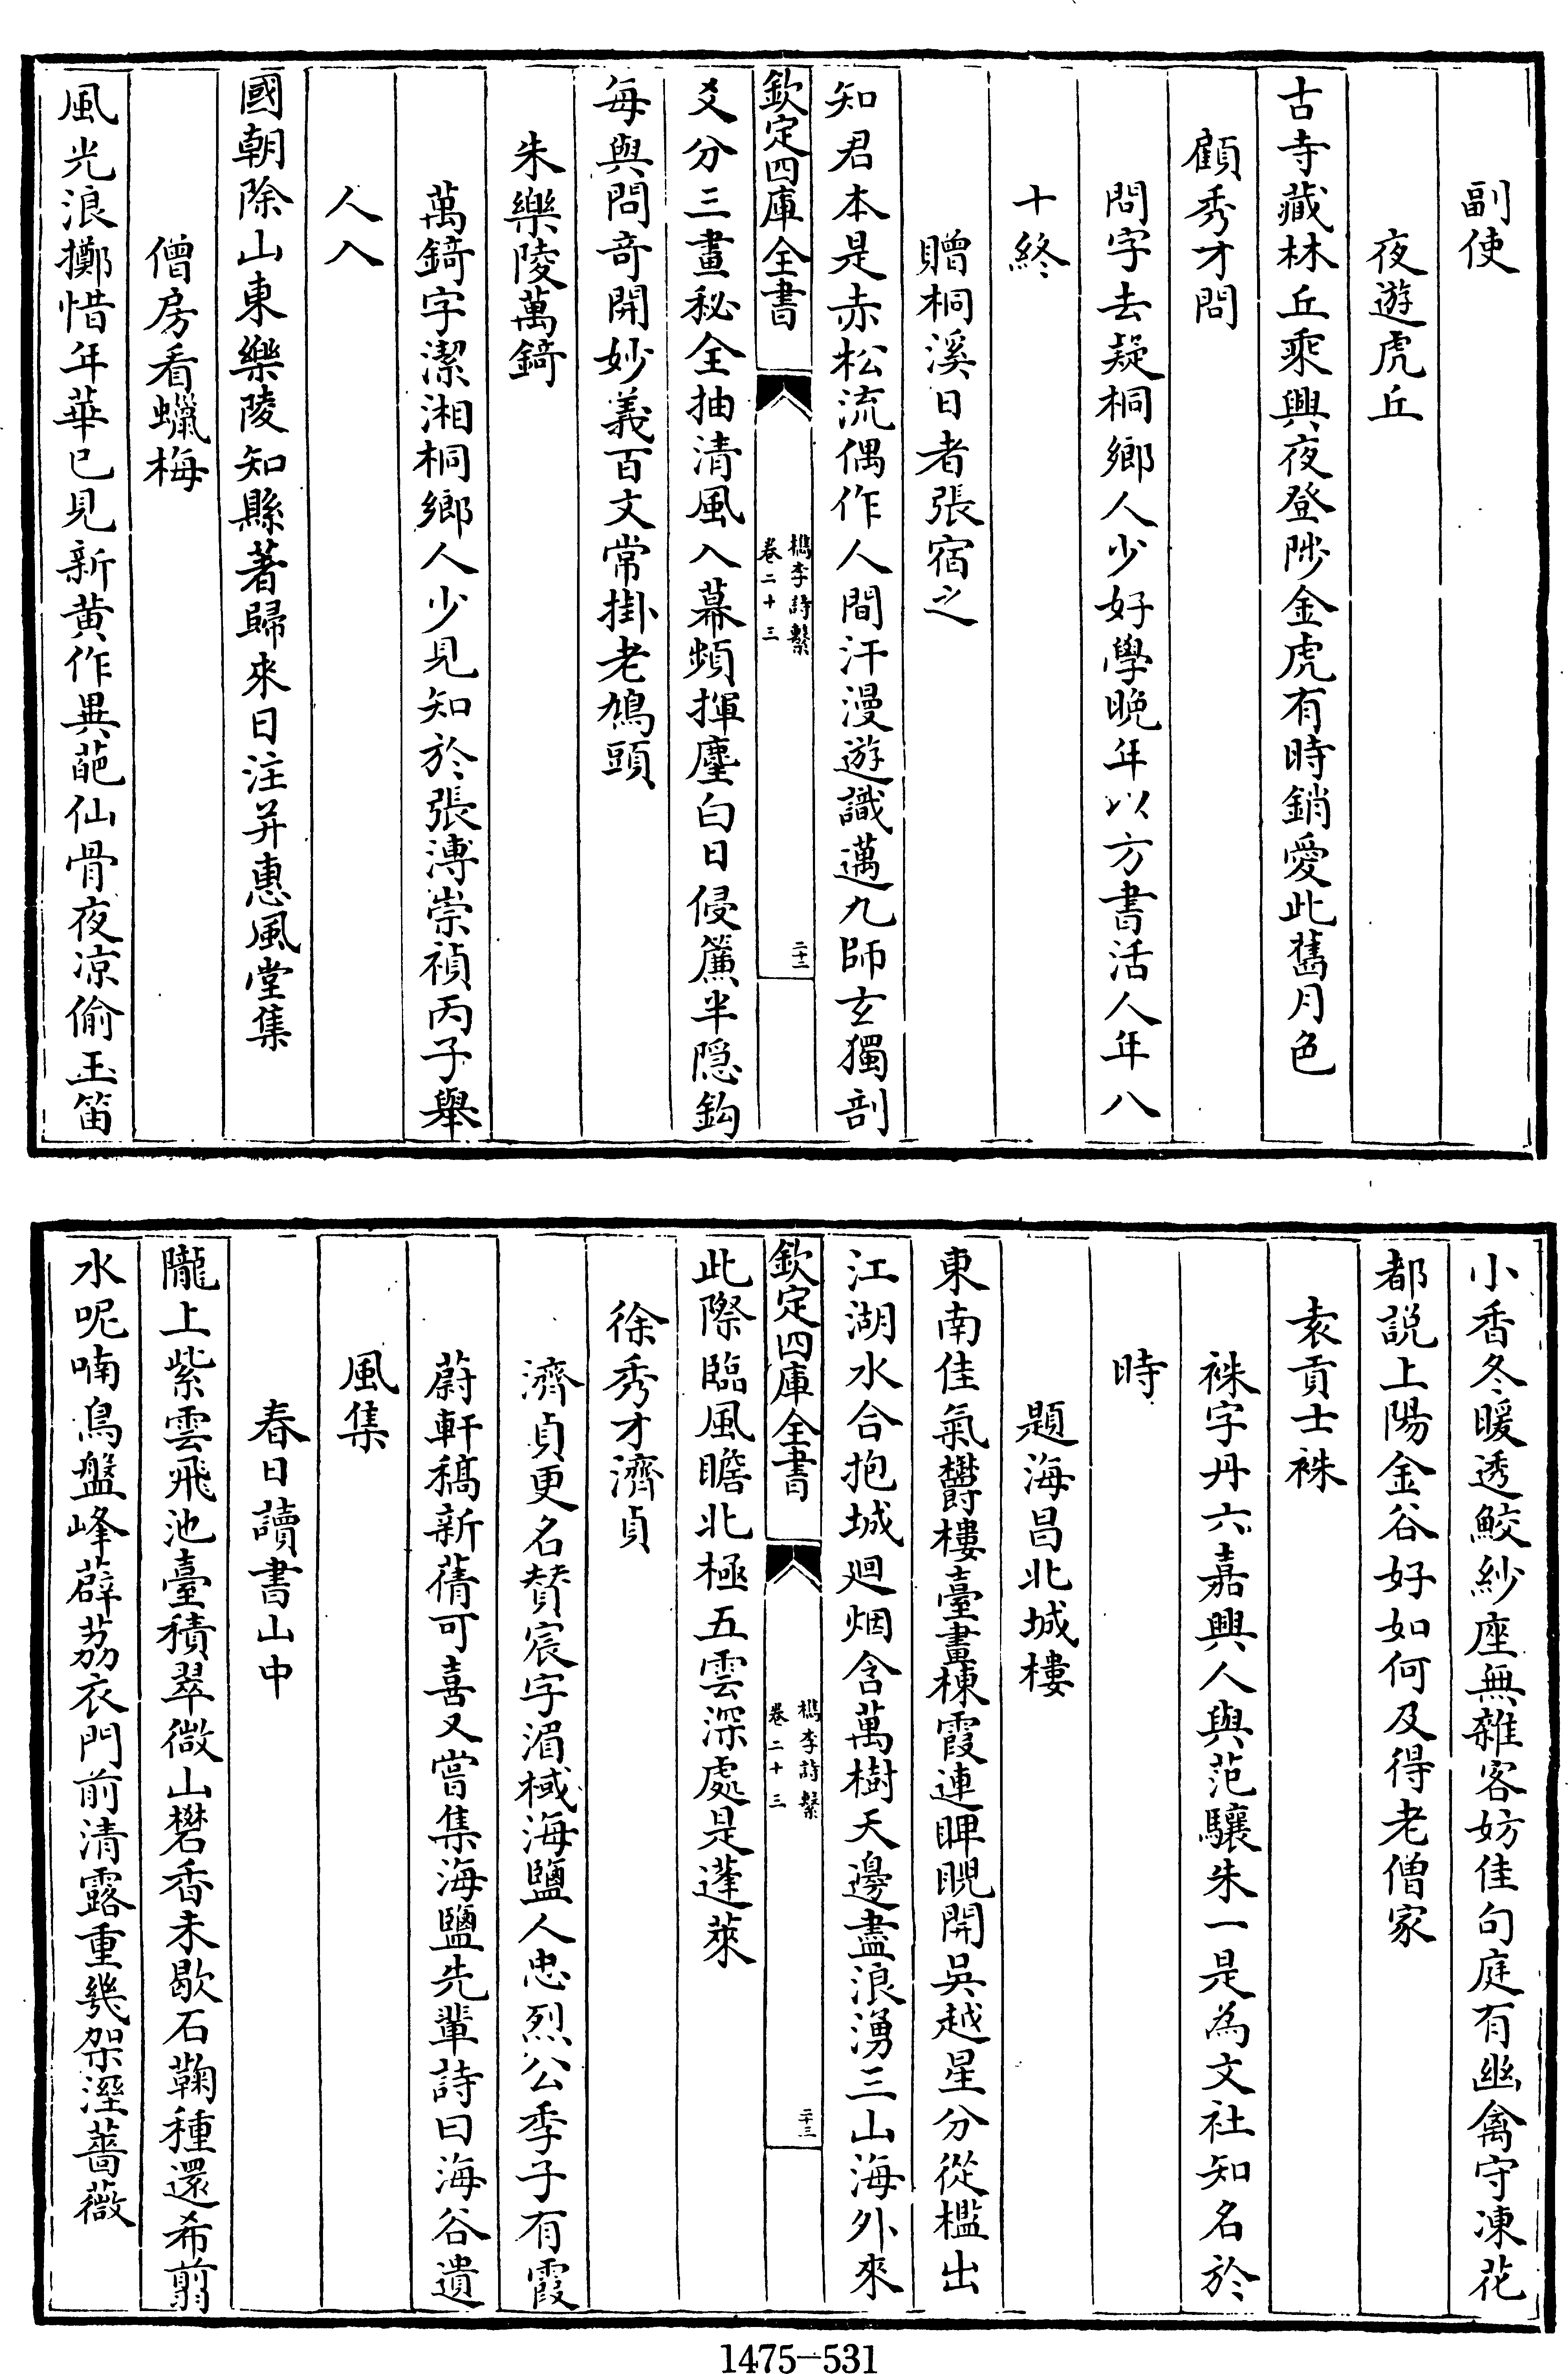 副使
夜遊虎丘
古寺藏林丘乘興夜登陟金虎有時銷愛此舊月色
顧秀才問
問字去疑桐鄉人少好學晚年以方書活人年八
十終
贈桐溪日者張宿之
知君本是赤松流偶作人間汗漫遊識邁九師玄獨剖
欽定四庫全書
檇李詩繫
卷二十三
二十二
爻分三畫秘全抽清風入幕頻揮麈白日侵簾半隱鈎
每與問竒開妙義百文常掛老鳩頭
朱樂陵萬錡
萬錡字潔湘桐鄉人少見知於張溥崇禎丙子舉
人入
國朝除山東樂陵知縣著歸來日注并惠風堂集
僧房看蠟梅
風光浪擲惜年華已見新黄作異葩仙骨夜凉偷玉笛
小香冬暖透鮫紗座無雜客妨佳句庭有幽禽守凍花
都説上陽金谷好如何及得老僧家
袁貢士袾
袾字丹六嘉興人與范驤朱一是為文社知名於
時
題海昌北城樓
東南佳氣欝樓臺畫棟霞連睥睨開吳越星分從檻出
江湖水合抱城迴烟含萬樹天邊盡浪湧三山海外來
欽定四庫全書
檇李詩繫
卷二十三
二十三
此際臨風瞻北極五雲深處是蓬萊
徐秀才濟貞
濟貞更名贊宸字湄棫海鹽人忠烈公季子有霞
蔚軒稿新蒨可喜又嘗集海鹽先輩詩曰海谷遺
風集
春日讀書山中
隴上紫雲飛池臺積翠微山礬香未歇石蘜種還希翦
水呢喃鳥盤峰薜荔衣門前清露重幾架溼薔薇
1475-531